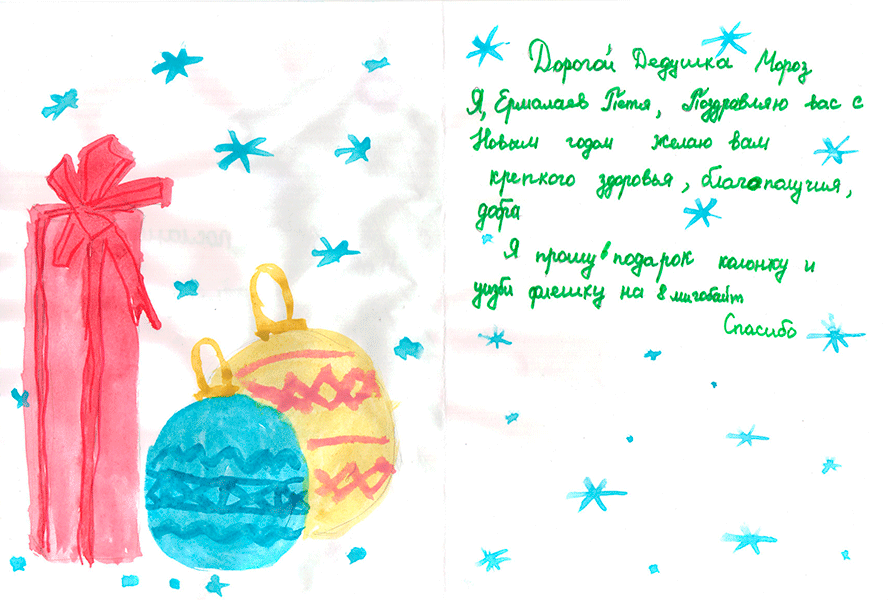 Дорогой Дедушка Мороз
Я, Ермалаев Петя, Поздравляю вас с
Новым годом желаю вам
крепкого здоровья, благополучия,
добра
Я прошу в подарок колонку и
уизби флешку на 8 мигобайт
Спасибо